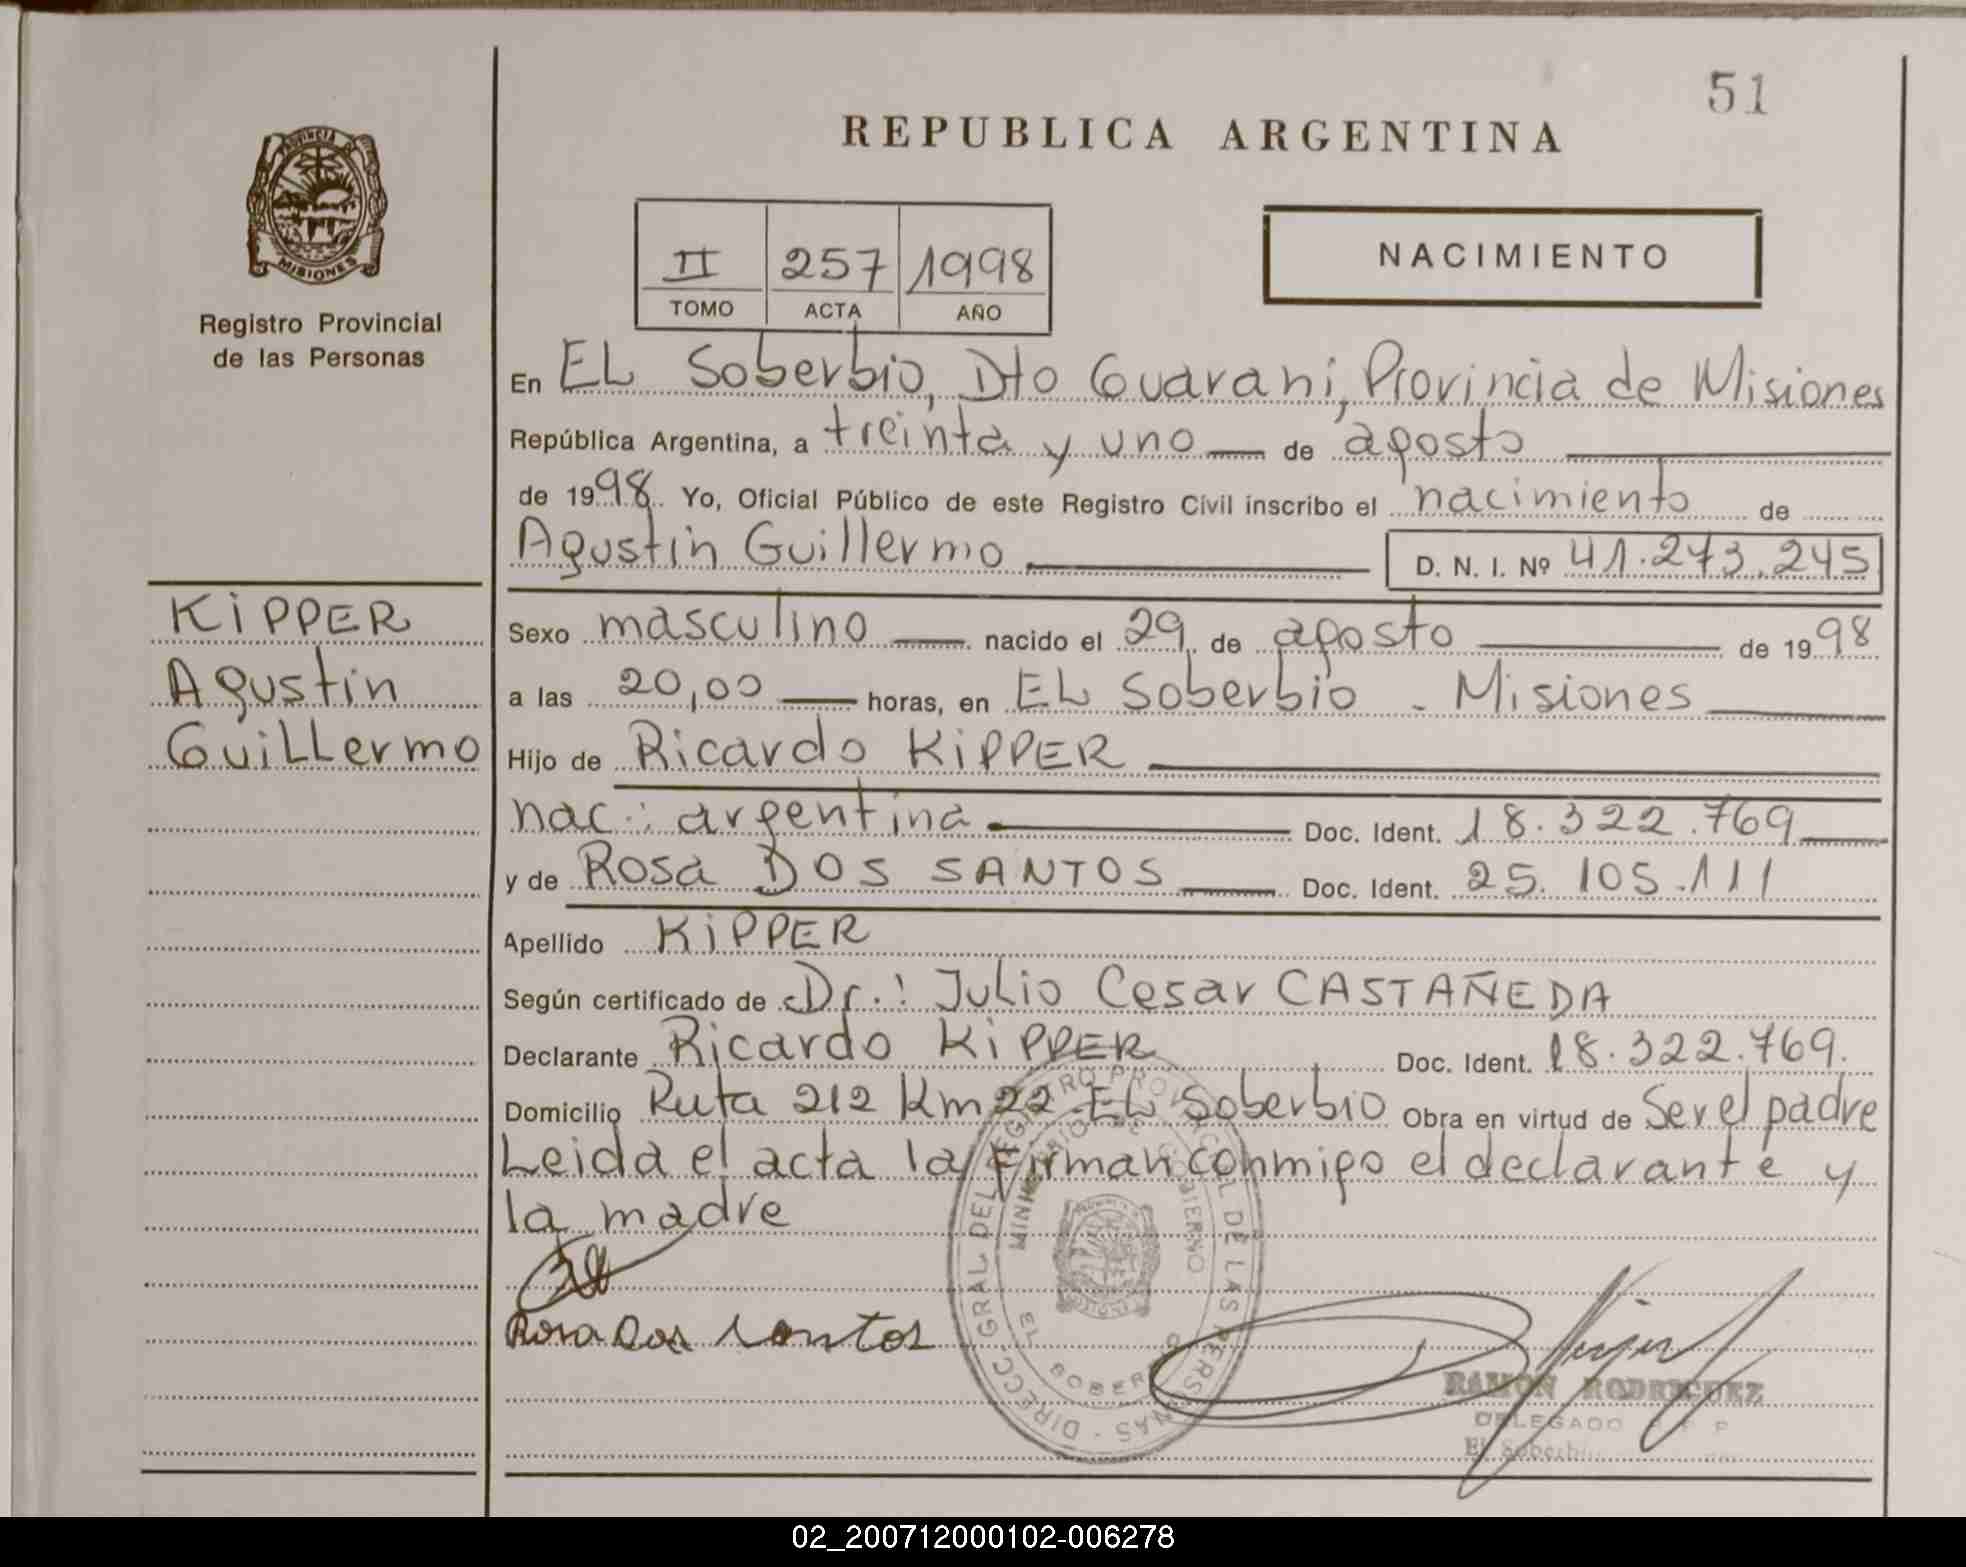 51
REPUBLICA ARGENTINA
PROVINCIA DE
MISIONES
Registro Provincial
de las Personas
II 257 1998
TOMO ACTA AÑO
NACIMIENTO
En EL Soberbio, Dto Guarani, Provincia de Misiones
República Argentina, a treinta y uno de agosto
de 1998 Yo, Oficial Público de este Registro Civil inscribo el nacimiento de
Agustin Guillermo D. N. I. Nº 41.273.245
KiPPER
Agustin
Guillermo
Sexo masculino nacido el 29 de agosto de 1998
a las 20,00 horas, en EL Soberbio - Misiones
Hijo de Ricardo KiPPER
nac.: argentina Doc. Ident. 18.322.769
y de Rosa DOS SANTOS Doc. Ident. 25.105.111
Apellido KiPPER
Según certificado de Dr.: Julio Cesar CASTAÑEDA
Declarante Ricardo KiPPER Doc. Ident. 18.322.769.
Domicilio Ruta 212 Km 22 EL Soberbio Obra en virtud de Ser el padre
Leida el acta la firman conmigo el declarante y
la madre
Rosa Dos santos
DIRECC. GRAL DEL REGISTRO PROVINCIAL DE LAS PERSONAS
MINISTERIO DE GOBIERNO
EL SOBERBIO
RAMON RODRIGUEZ
DELEGADO R P P
El Soberbio
02_200712000102-006278